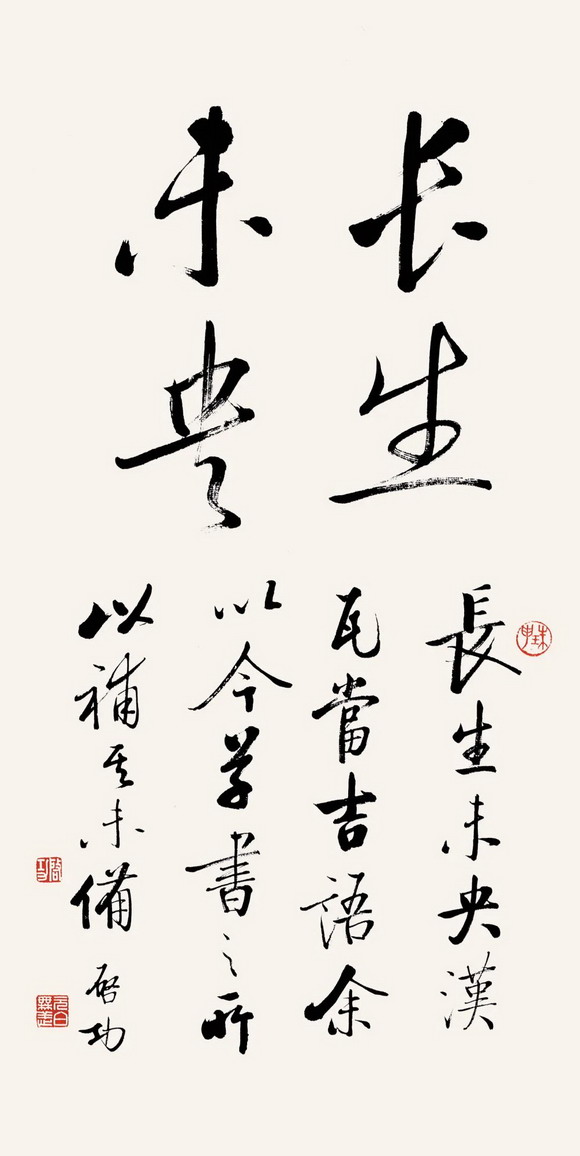 长生
未央
珠申
長生未央漢
瓦當吉語余
以今草書之所
以補其未備 啓功